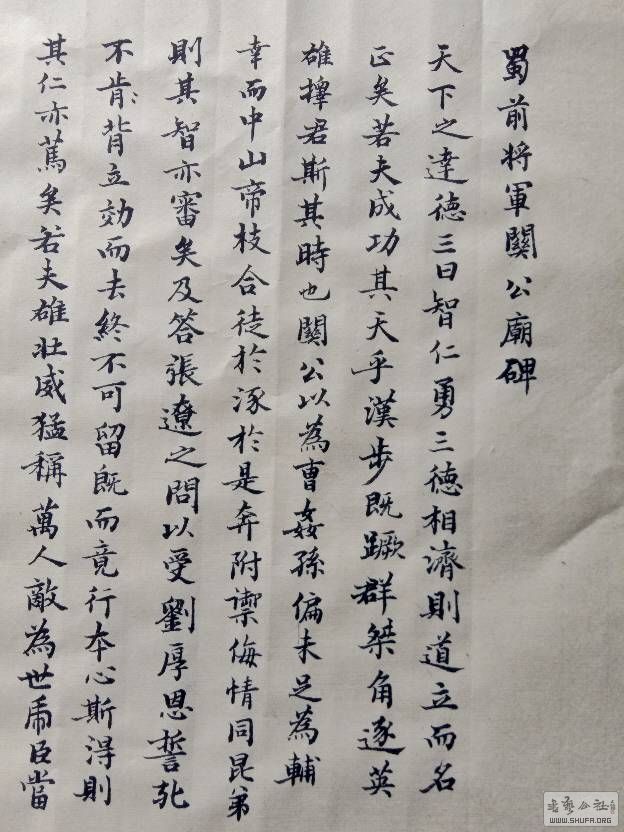 蜀前将軍関公廟碑
天下之達徳三曰智仁勇三徳相濟則道立而名
正矣若夫成功其天乎漢步既蹶群桀角逐英
雄擇君斯其時也関公以為曺姦孫偏未足為輔
幸而中山帝枝合徒於涿於是奔附禦侮情同昆弟
則其智亦審矣及答張遼之問以受劉厚恩誓死
不肯背立効而去終不可留既而竟行本心斯得則
其仁亦篤矣若夫雄壮威猛稱萬人敵為世虎臣當
書藝公社
WWW.SHUFA.ORG